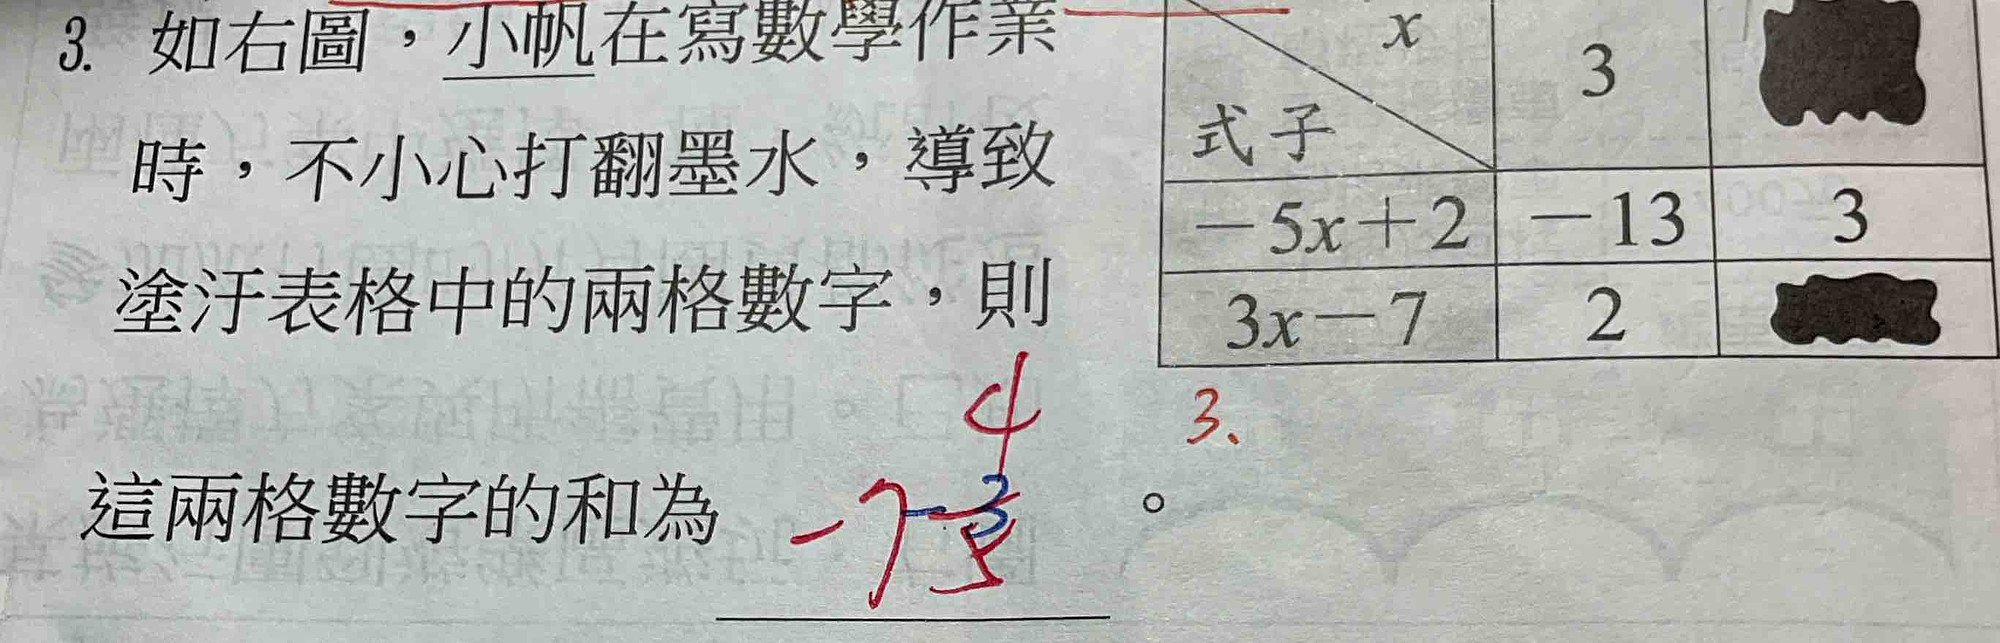 3. 如右圖，小帆在寫數學作業
時，不小心打翻墨水，導致
塗汙表格中的兩格數字，則
這兩格數字的和為 -7 4/5 。
x 3
式子
-5x+2 -13 3
3x-7 2
3、